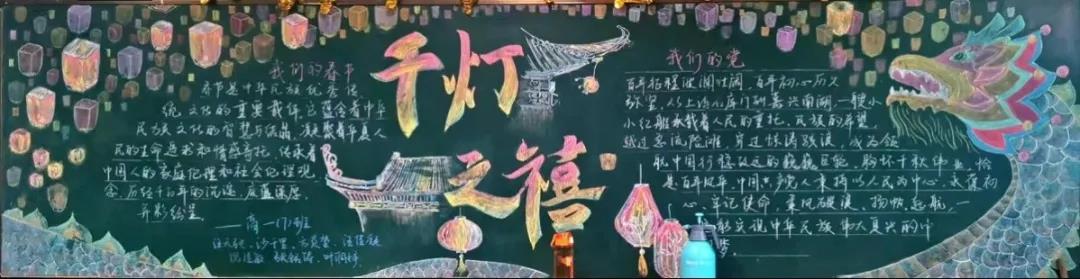 我们的春节
春节是中华民族优秀传
统文化的重要载体,它蕴含着中华
民族文化的智慧与结晶,凝聚着华夏人
民的生命追求和情感寄托,传承着
中国人的家庭伦理和社会伦理观
念,历经千百年的沉淀,底蕴深厚
异彩纷呈
高一(7)班
千灯
之禧
我们的党
百年征程波澜壮阔,百年初心历久
弥坚,从上海石库门到嘉兴南湖,一艘小
小红船承载着人民的重托、民族的希望,
越过急流险滩,穿过惊涛骇浪,成为领
航中国行稳致远的巍巍巨轮,胸怀千秋伟业,恰
是百年风华,中国共产党人秉持以人民为中心,永葆初
心、牢记使命,乘风破浪、扬帆远航,一
定能实现中华民族伟大复兴的中
梦。